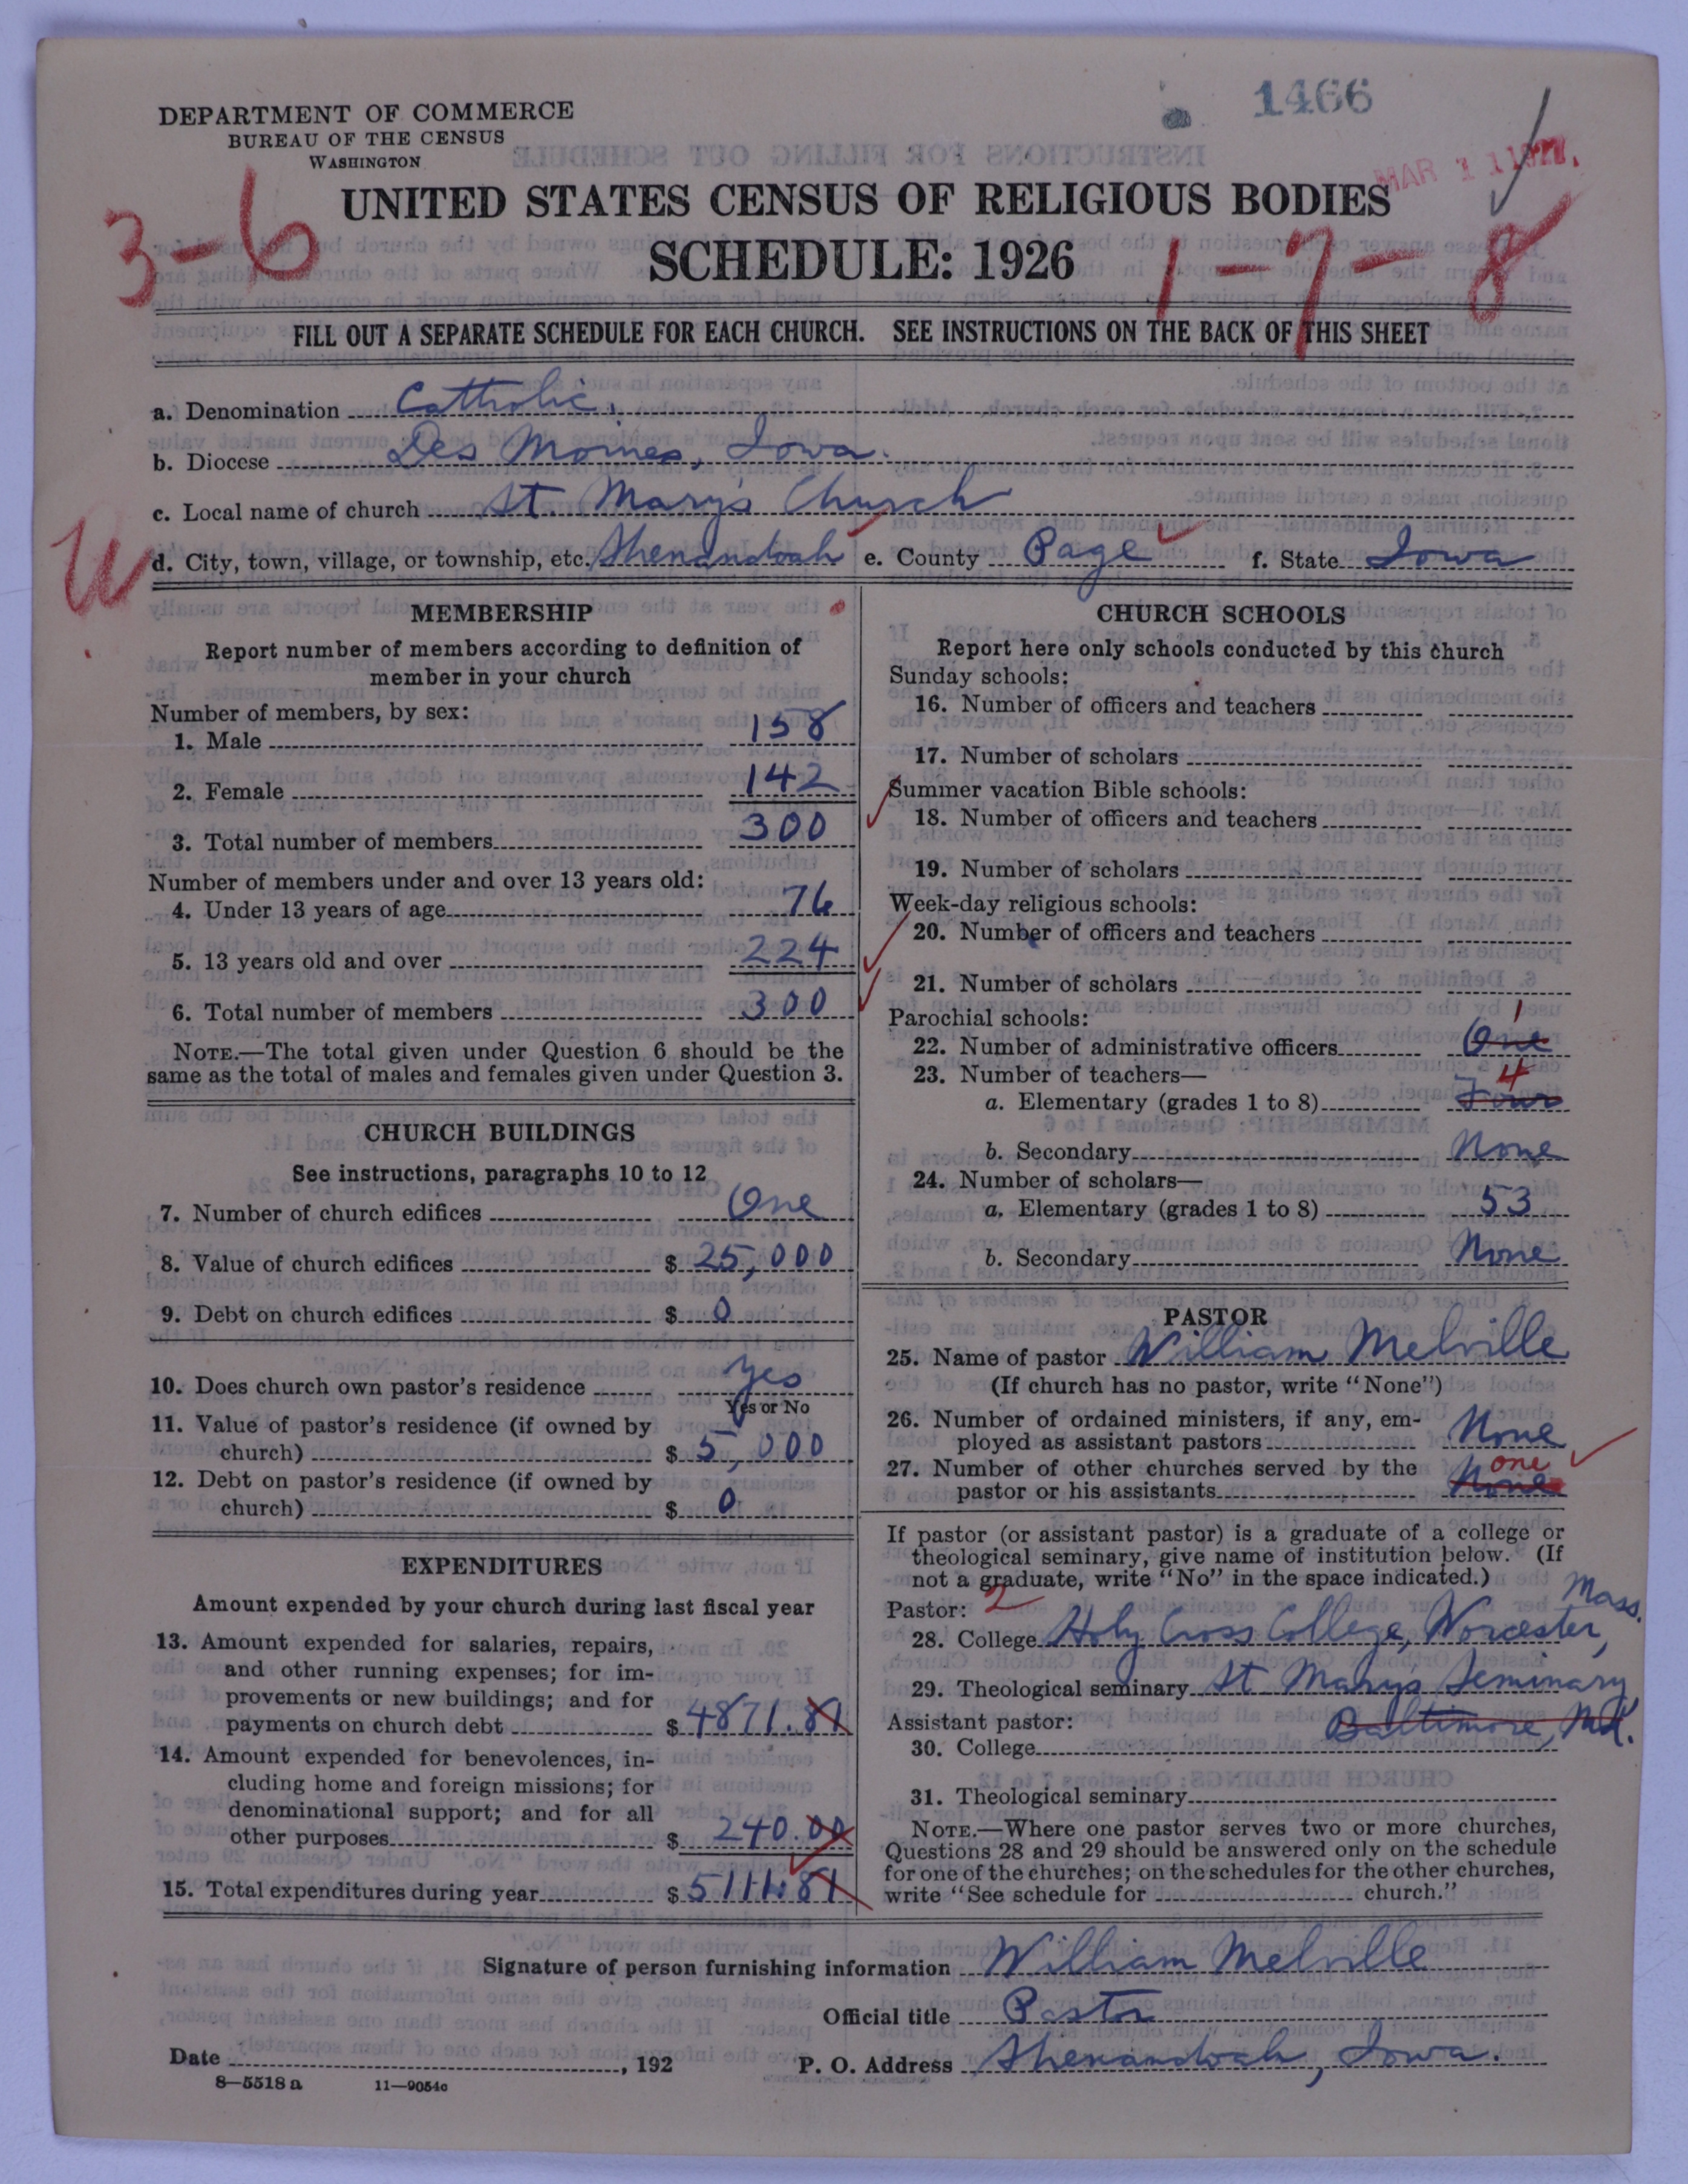 1466
DEPARTMENT OF COMMERCE
BUREAU OF THE CENSUS
WASHINGTON
MAR 11 1927.
3-6
UNITED STATES CENSUS OF RELIGIOUS BODIES
SCHEDULE: 1926
1-7-8
FILL OUT A SEPARATE SCHEDULE FOR EACH CHURCH. SEE INSTRUCTIONS ON THE BACK OF THIS SHEET
a. Denomination Catholic.
b. Diocese Des Moines, Iowa.
c. Local name of church St. Mary's Church
d. City, town, village, or township, etc. Shenandoah e. County Page f. State Iowa
MEMBERSHIP
Report number of members according to definition of
member in your church
Number of members, by sex:
1. Male 158
2. Female 142
3. Total number of members 300
Number of members under and over 13 years old:
4. Under 13 years of age 76
5. 13 years old and over 224
6. Total number of members 300
NOTE.—The total given under Question 6 should be the
same as the total of males and females given under Question 3.
CHURCH BUILDINGS
See instructions, paragraphs 10 to 12
7. Number of church edifices One
8. Value of church edifices $ 25,000
9. Debt on church edifices $ 0
10. Does church own pastor's residence Yes
Yes or No
11. Value of pastor's residence (if owned by
church) $ 5,000
12. Debt on pastor's residence (if owned by
church) $ 0
EXPENDITURES
Amount expended by your church during last fiscal year
13. Amount expended for salaries, repairs,
and other running expenses; for im-
provements or new buildings; and for
payments on church debt $ 4871.81
14. Amount expended for benevolences, in-
cluding home and foreign missions; for
denominational support; and for all
other purposes $ 240.00
15. Total expenditures during year $ 5111.81
CHURCH SCHOOLS
Report here only schools conducted by this church
Sunday schools:
16. Number of officers and teachers
17. Number of scholars
Summer vacation Bible schools:
18. Number of officers and teachers
19. Number of scholars
Week-day religious schools:
20. Number of officers and teachers
21. Number of scholars
Parochial schools:
1
22. Number of administrative officers One
23. Number of teachers—
4
a. Elementary (grades 1 to 8) Four
b. Secondary None
24. Number of scholars—
a. Elementary (grades 1 to 8) 53
b. Secondary None
PASTOR
25. Name of pastor William Melville
(If church has no pastor, write "None")
26. Number of ordained ministers, if any, em-
ployed as assistant pastors None
27. Number of other churches served by the one
pastor or his assistants None
If pastor (or assistant pastor) is a graduate of a college or
theological seminary, give name of institution below. (If
not a graduate, write "No" in the space indicated.)
Pastor: 2 Mass.
28. College Holy Cross College, Worcester,
29. Theological seminary St Mary's Seminary
Assistant pastor: Baltimore, Md.
30. College
31. Theological seminary
NOTE.—Where one pastor serves two or more churches,
Questions 28 and 29 should be answered only on the schedule
for one of the churches; on the schedules for the other churches,
write "See schedule for church."
Signature of person furnishing information William Melville
Official title Pastor
Date , 192 P. O. Address Shenandoah, Iowa.
8—5518 a 11—9054c